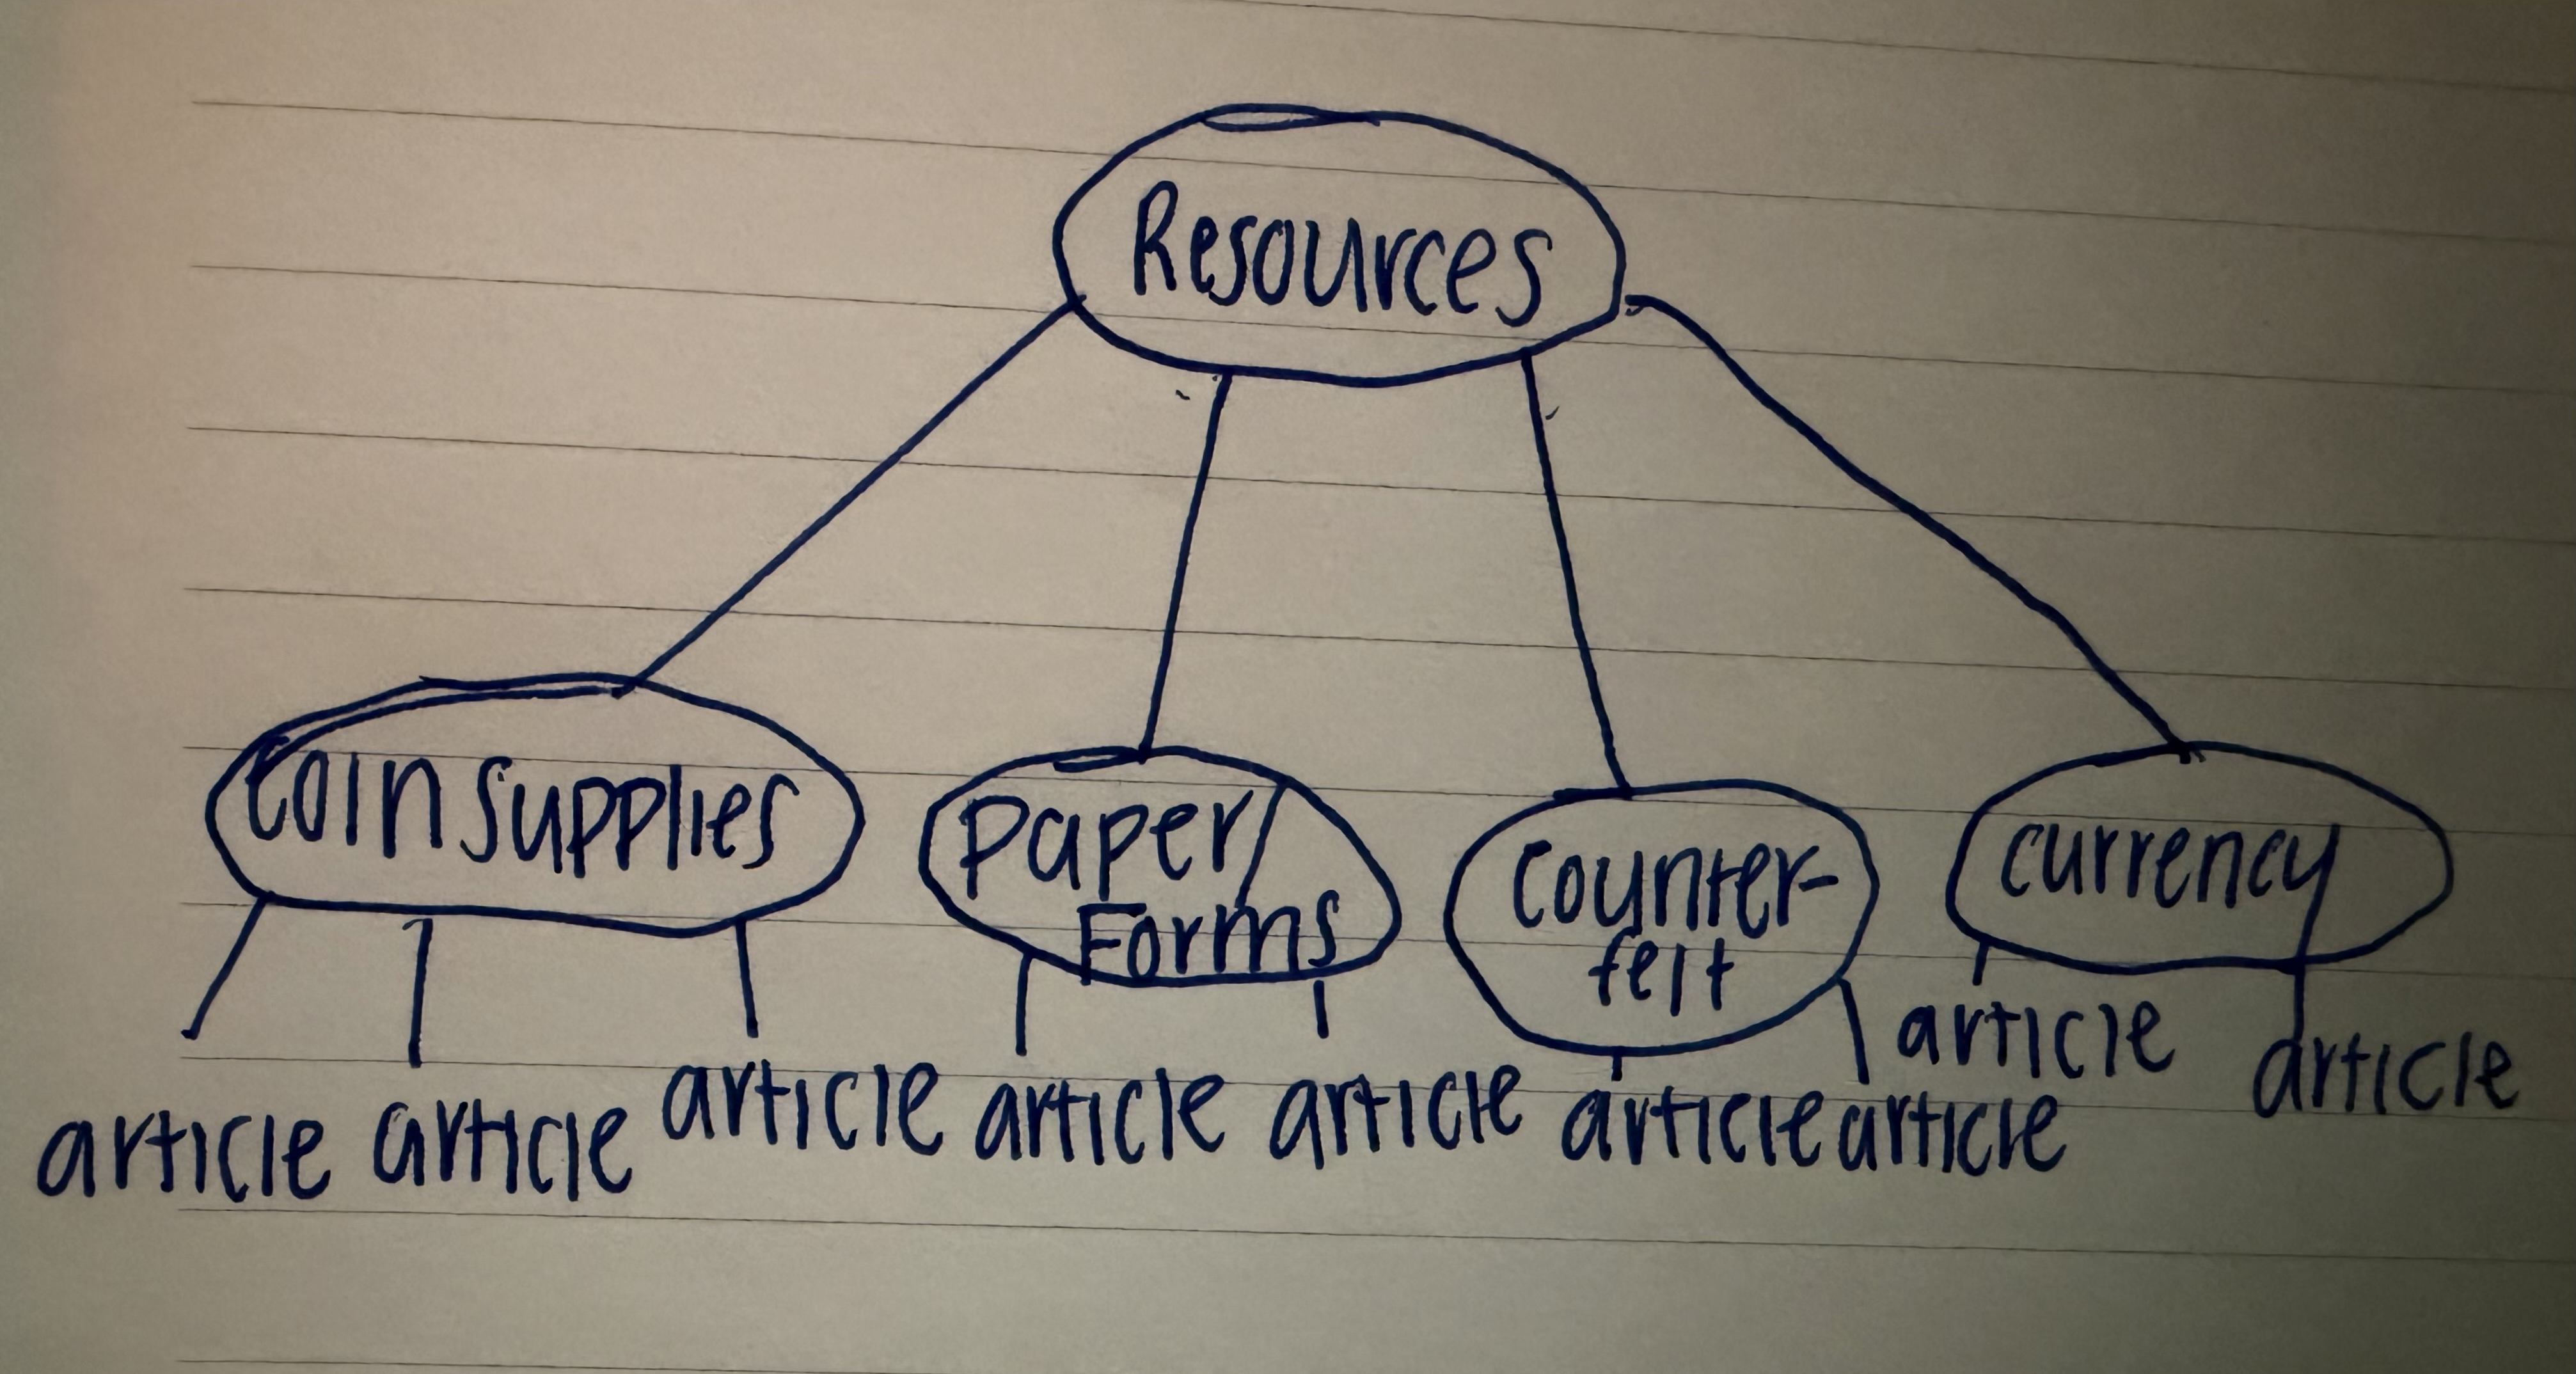 Resources
Coin supplies
Paper/
Forms
Counter-
feit
currency
article article article article article article article article article